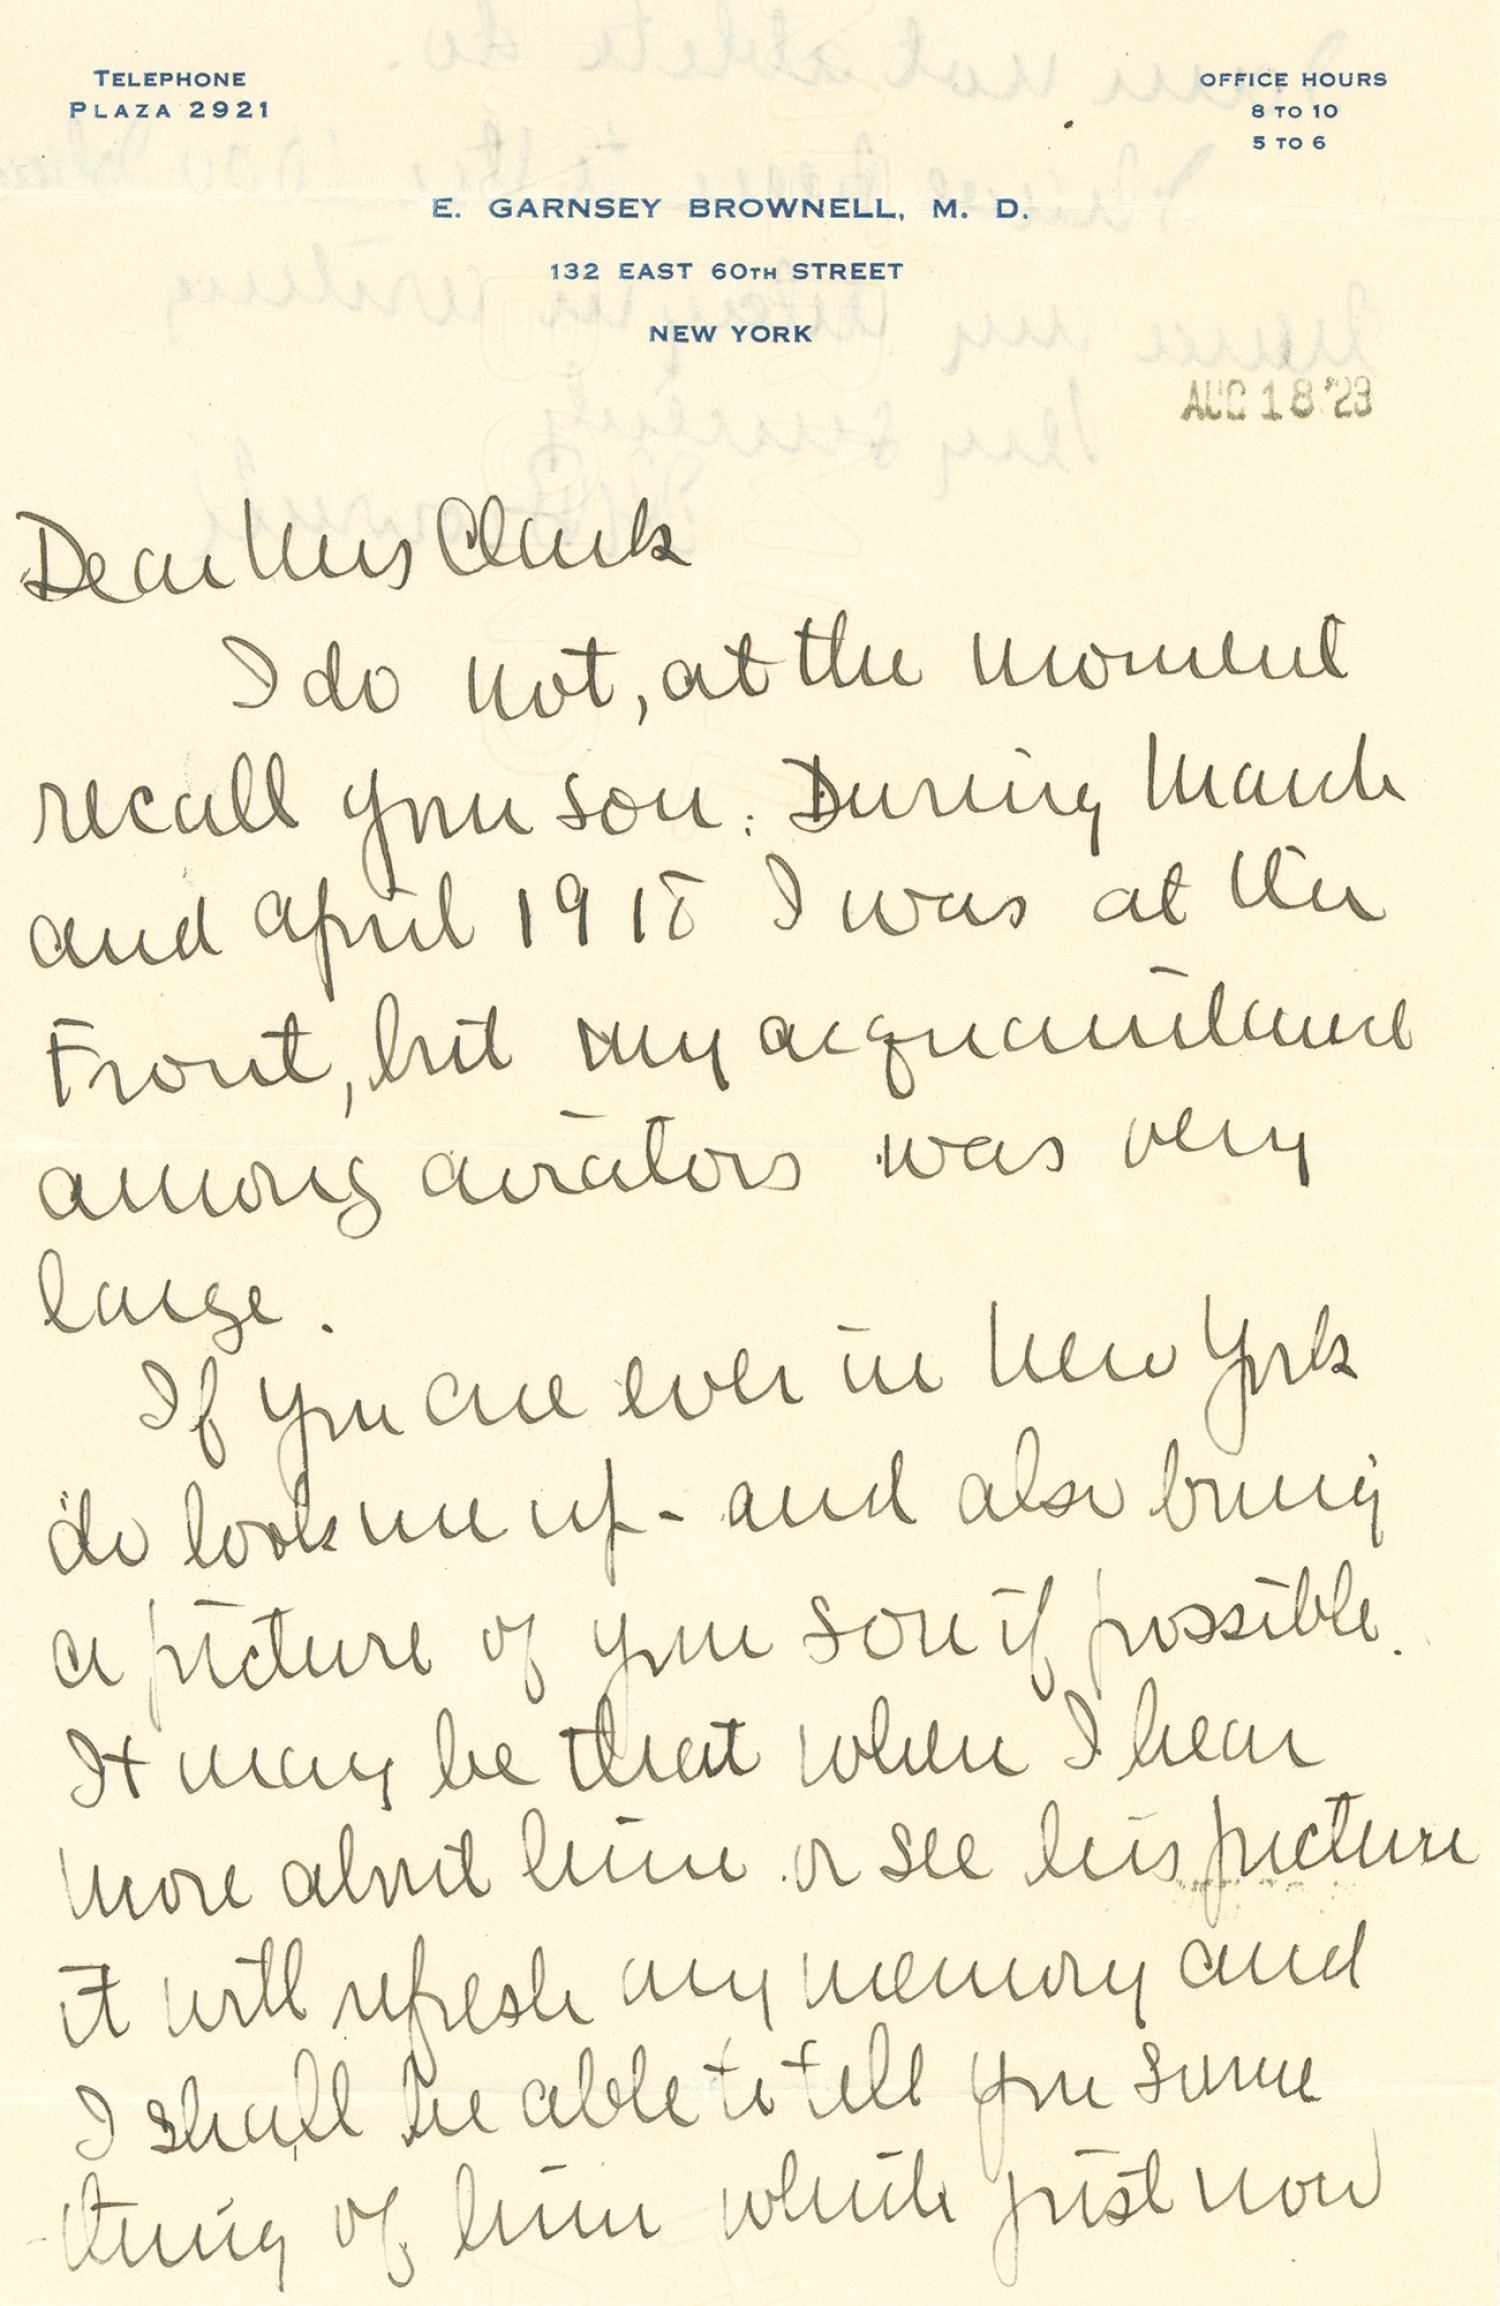 TELEPHONE
PLAZA 2921
OFFICE HOURS
8 TO 10
5 TO 6
E. GARNSEY BROWNELL, M. D.
132 EAST 60TH STREET
NEW YORK
AUG 18 '23
Dear Mrs Clark
I do not, at the moment
recall your son. During March
and April 1918 I was at the
Front, but my acquaintance
among aviators was very
large.
If you are ever in New York
do look me up - and also bring
a picture of your son if possible.
It may be that when I hear
more about him or see his picture
it will refresh my memory and
I shall be able to tell you some
thing of him which just now